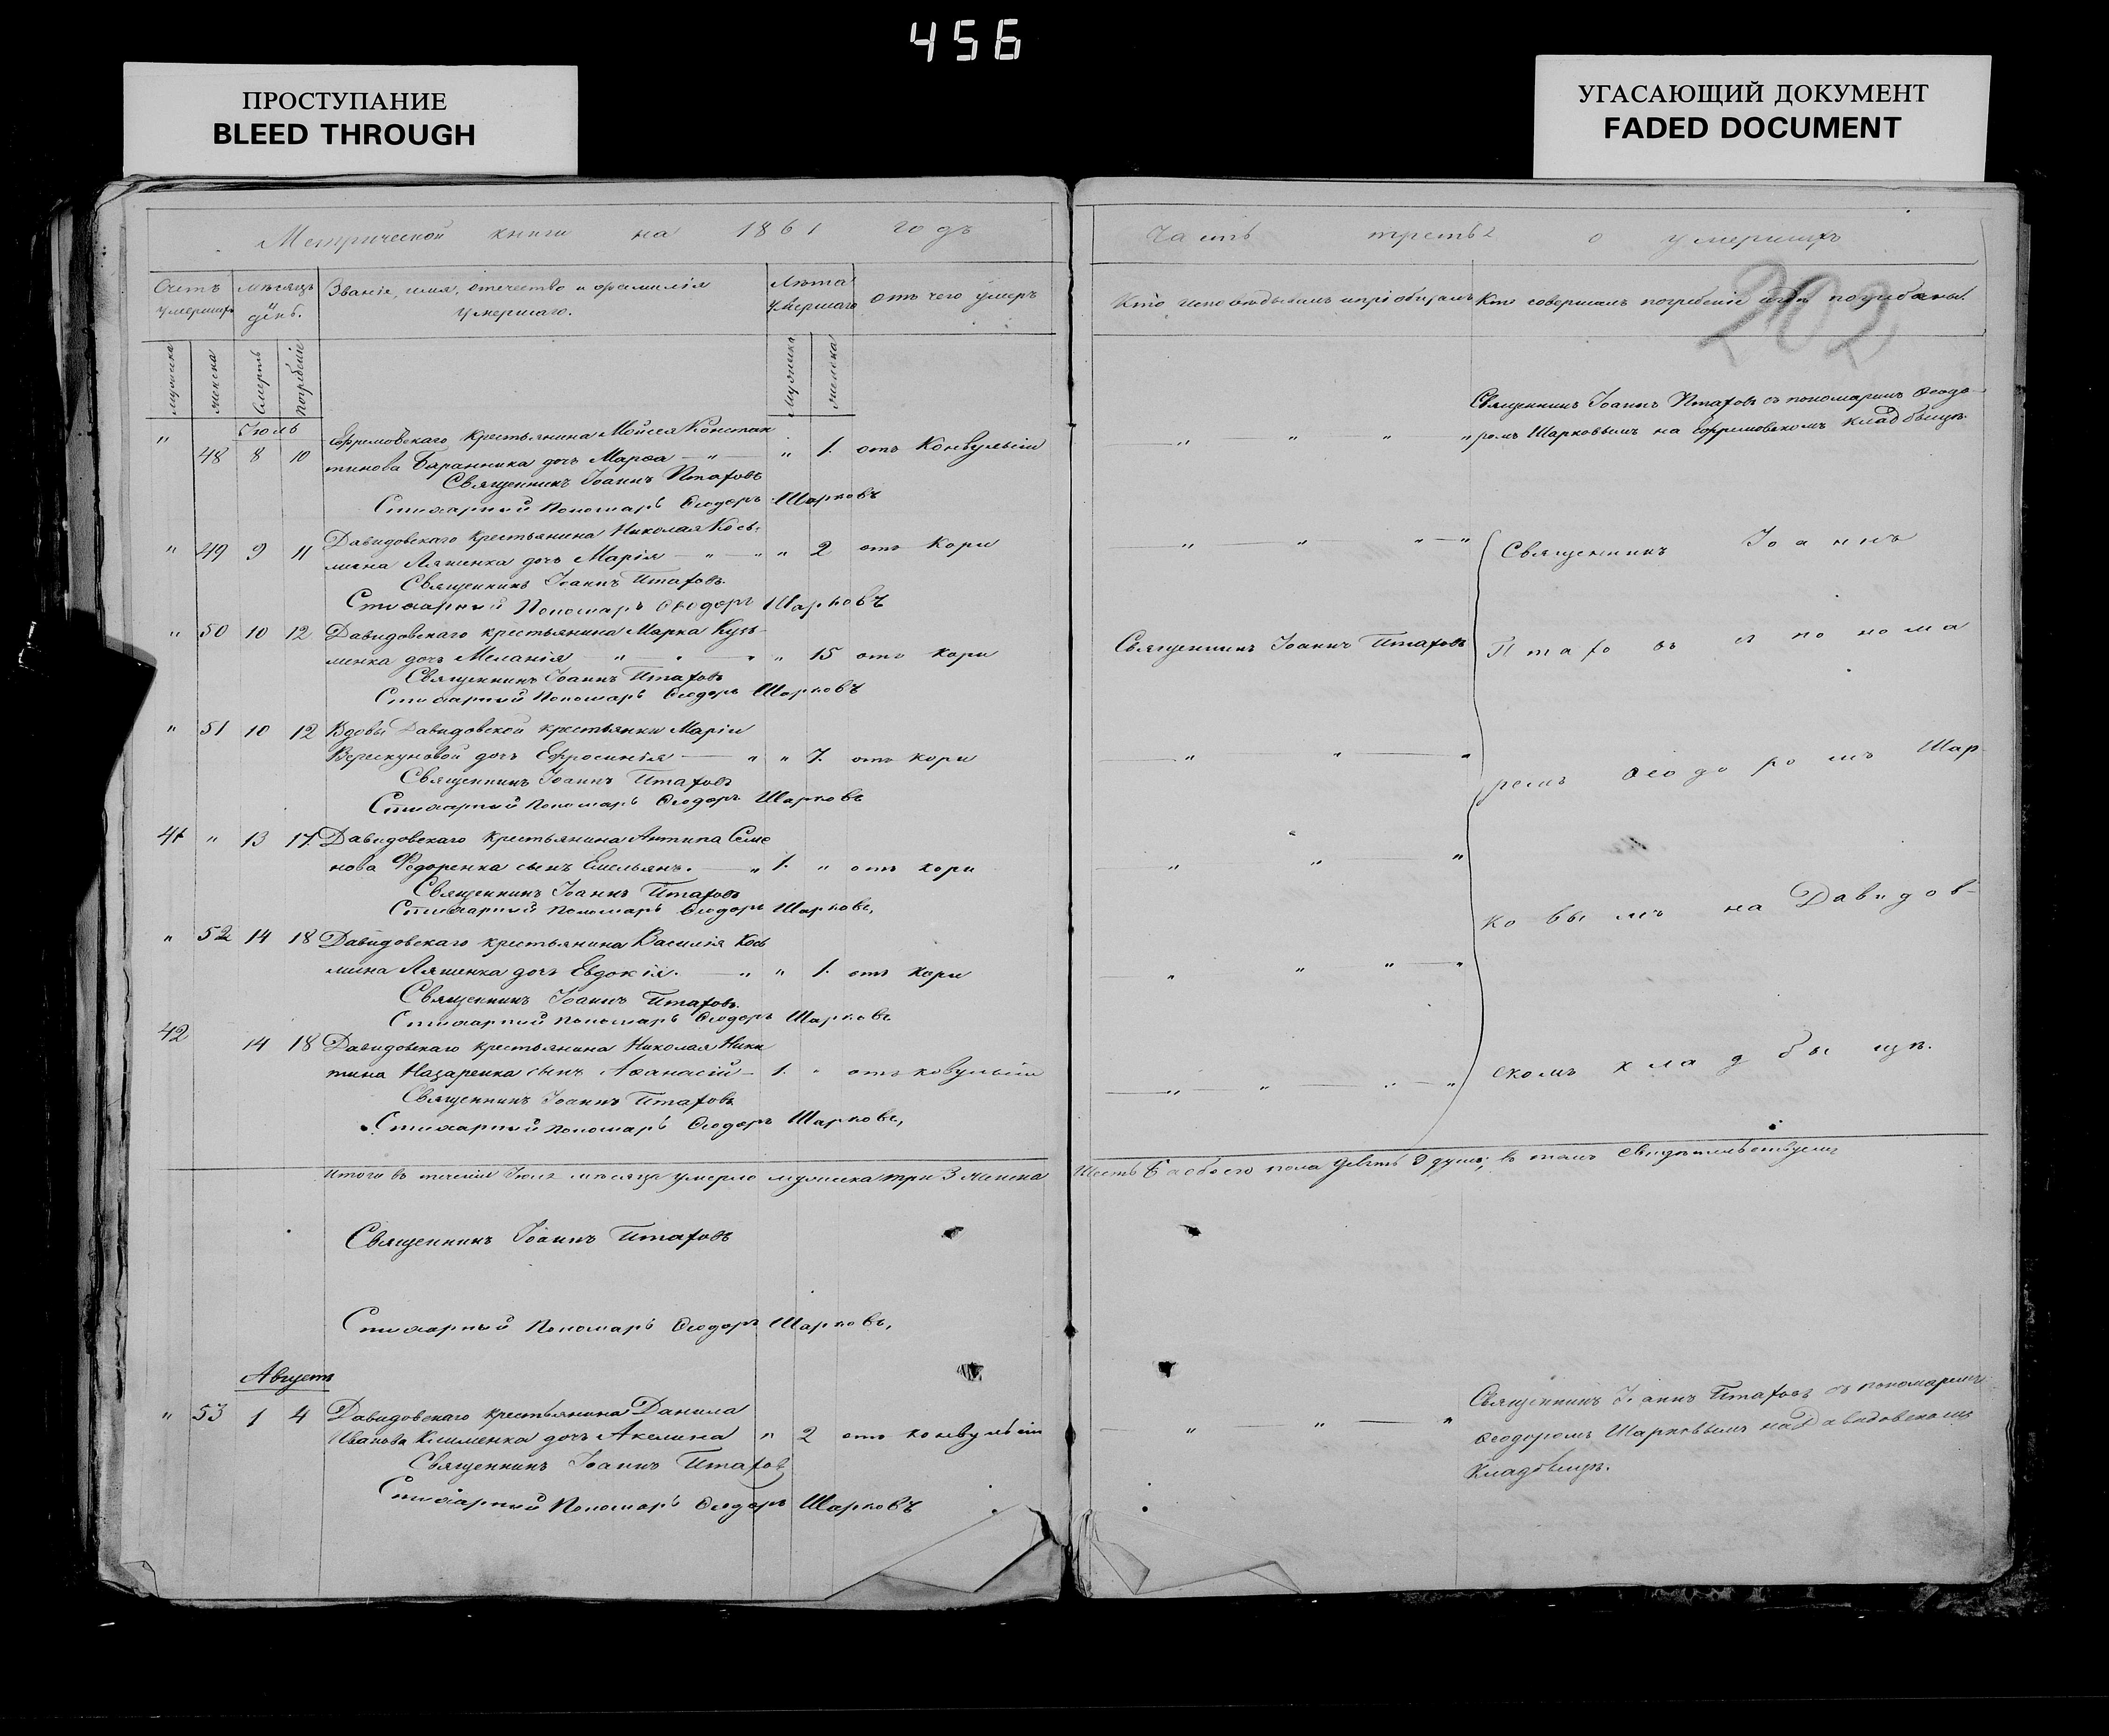 456
ПРОСТУПАНИЕ
BLEED THROUGH
УГАСАЮЩИЙ ДОКУМЕНТ
FADED DOCUMENT
Метрической книги на 1861 годъ
Счетъ умершихъ
мѣсяцъ и день.
Званіе, имя, отечество и фамилія умершаго.
Лѣта умершаго
отъ чего умеръ
мужеска
женска
Смерть
погребеніе
мужеска
женска
Іюль
" 48 8 10 Ефремовскаго крестьянина Мойсея Констан
тинова Баранника дочь Марѳа — " — " 1. отъ Конвульсіи
Священникъ Іоаннъ Птаховъ
Стихарный Пономарь Ѳеодоръ Шарковъ
" 49 9 11 Давидовскаго крестьянина Николая Кось-
мина Ляшенка дочь Марія — " — " " 2 отъ Кори
Священникъ Іоаннъ Птаховъ.
Стихарный Пономарь Ѳеодоръ Шарковъ
" 50 10 12 Давидовскаго крестьянина Марка Кузь-
менка дочь Меланія " " " " 15 отъ Кори
Священникъ Іоаннъ Птаховъ
Стихарный Пономарь Ѳеодоръ Шарковъ
" 51 10 12 Вдовы Давидовской крестьянки Маріи
Верескуновой дочь Ефросинія — " " 7. отъ кори
Священникъ Іоаннъ Птаховъ
Стихарный Пономарь Ѳеодоръ Шарковъ
41 " 13 17. Давидовскаго крестьянина Антипа Семе
нова Федоренка сынъ Емельянъ. — " 1. " отъ кори
Священникъ Іоаннъ Птаховъ
Стихарный Пономарь Ѳеодоръ Шарковъ,
" 52 14 18 Давидовскаго крестьянина Василія Кось
мина Ляшенка дочь Евдокія. — " " 1. отъ кори
Священникъ Іоаннъ Птаховъ.
Стихарный Пономарь Ѳеодоръ Шарковъ
42 14 18 Давидовскаго крестьянина Николая Ники
тина Назаренка сынъ Аѳанасій — 1. " отъ ковульсіи
Священникъ Іоаннъ Птаховъ
Стихарный Пономарь Ѳеодоръ Шарковъ,
Итого въ теченіи Іюля мѣсяца умерло мужеска три 3 женска
Священникъ Іоаннъ Птаховъ
Стихарный Пономарь Ѳеодоръ Шарковъ,
Августъ
" 53 1 4 Давидовскаго крестьянина Данила
Иванова Клименка дочь Акелина " 2 отъ конвульсіи
Священникъ Іоаннъ Птаховъ
Стихарный Пономарь Ѳеодоръ Шарковъ
Часть третья о умершихъ
202
Кто исповѣдывалъ и пріобщалъ
Кто совершалъ погребеніе и гдѣ погребены.
Священникъ Іоаннъ Птаховъ съ пономаремъ Ѳеодо-
— " " " " ромъ Шарковымъ на Ефремовскомъ кладбищѣ.
— " " " — " Священникъ Іоаннъ
Священникъ Іоаннъ Птаховъ Птаховъ съ понома
— " " — " ремъ Ѳеодоромъ Шар-
— " " — "
ковымъ на Давидов-
— " " " — "
скомъ кладбищѣ.
— " — " — " — "
Шесть 6 а обоего пола девять 9 душъ; въ томъ свидѣтельствуемъ
Священникъ Іоаннъ Птаховъ съ пономаремъ
— " — " — " Ѳеодоромъ Шарковымъ на Давидовскомъ
Кладбищѣ.